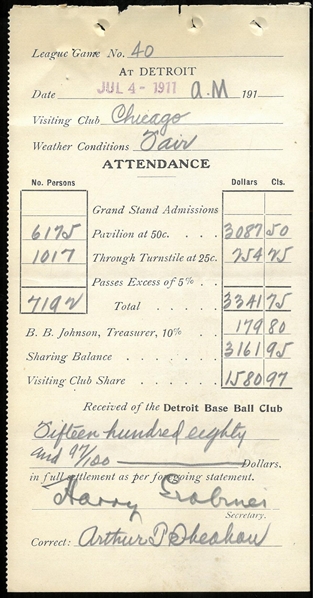 League Game No. 40
AT DETROIT
Date JUL 4 - 1911 A.M 191
Visiting Club Chicago
Weather Conditions Fair
ATTENDANCE
No. Persons Dollars Cts.
Grand Stand Admissions
6175 Pavilion at 50c. 3087 50
1017 Through Turnstile at 25c. 254 25
Passes Excess of 5%
7192 Total 3341 75
B. B. Johnson, Treasurer, 10% 179 80
Sharing Balance 3161 95
Visiting Club Share 1580 97
Received of the Detroit Base Ball Club
Fifteen hundred eighty
and 97/100 Dollars,
in full settlement as per foregoing statement.
Harry Grabiner
Secretary.
Correct: Arthur P Sheahan